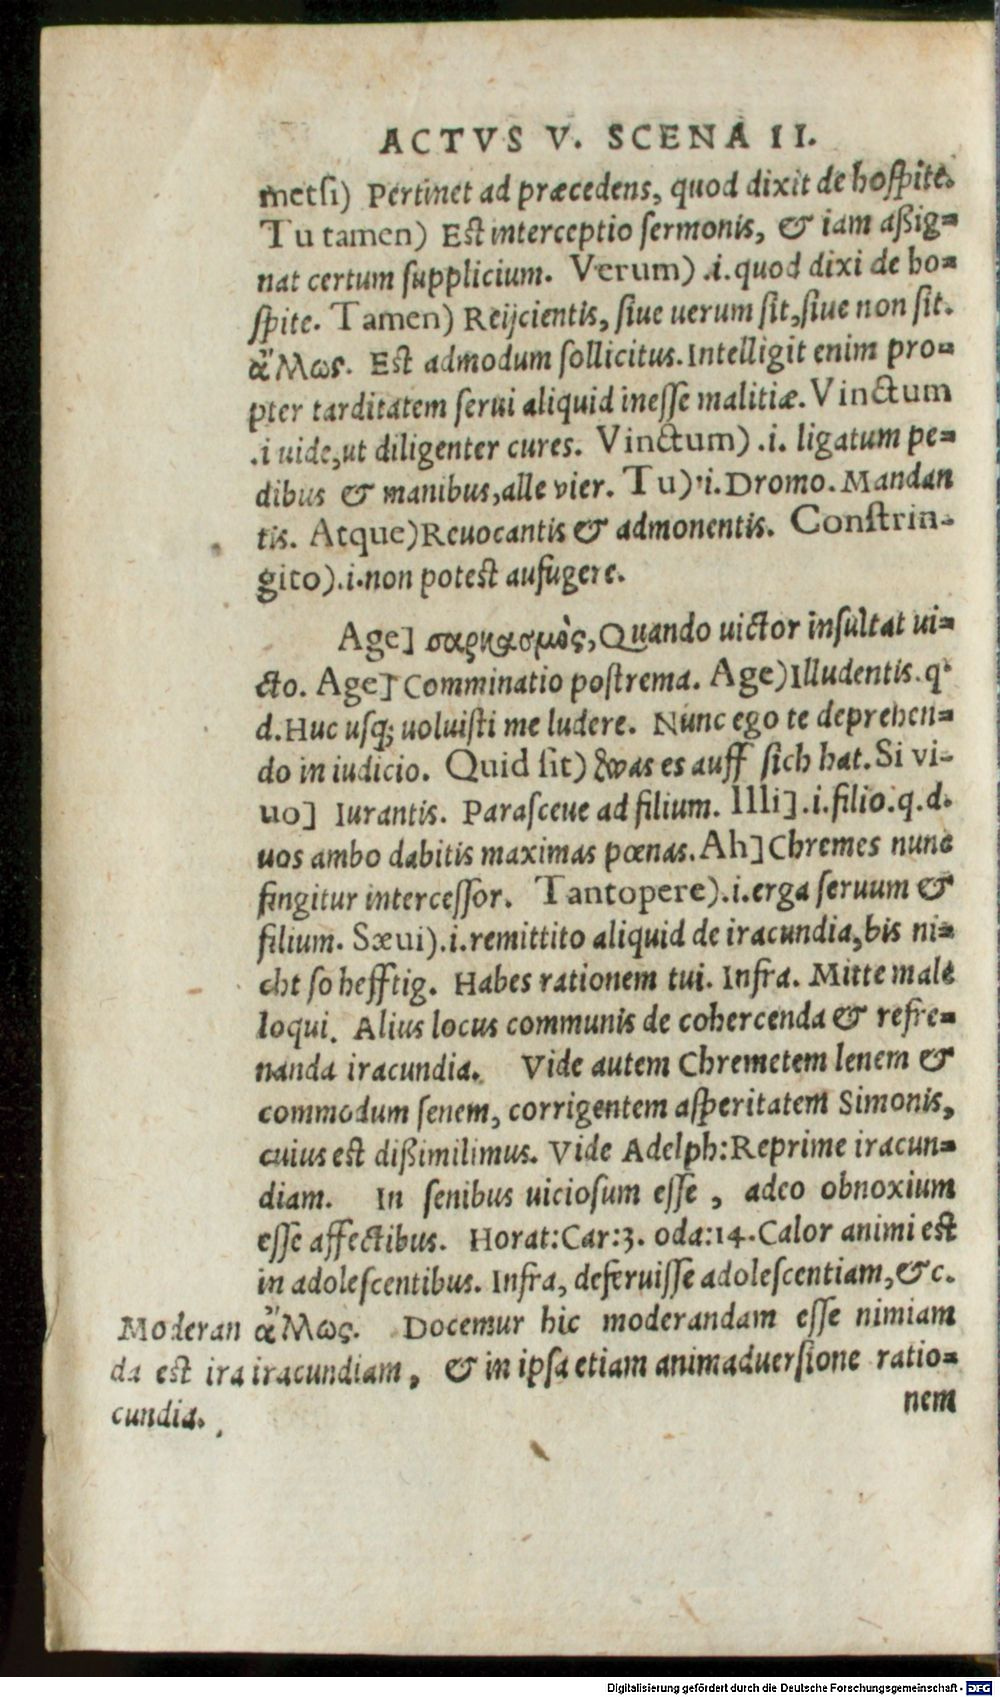 ACTVS V. SCENA II.
metsi) Pertinet ad præcedens, quod dixit de hospite.
Tu tamen) Est interceptio sermonis, & iam aßig=
nat certum supplicium. Verum) .i. quod dixi de ho=
spite. Tamen) Reijcientis, siue uerum sit, siue non sit.
ἄλλως. Est admodum sollicitus. Intelligit enim pro=
pter tarditatem serui aliquid inesse malitiæ. Vinctum
.i uide, ut diligenter cures. Vinctum) .i. ligatum pe=
dibus & manibus, alle vier. Tu) i. Dromo. Mandan
tis. Atque) Reuocantis & admonentis. Constrin-
gito) .i. non potest aufugere.
Age] σαρκασμὸς, Quando uictor insultat ui=
cto. Age] Comminatio postrema. Age) Illudentis. q
d. Huc usq; uoluisti me ludere. Nunc ego te deprehen=
do in iudicio. Quid sit) was es auff sich hat. Si vi-
uo] Iurantis. Parasceue ad filium. Illi] .i. filio. q. d.
uos ambo dabitis maximas pœnas. Ah] Chremes nunc
fingitur intercessor. Tantopere) .i. erga seruum &
filium. Sæui) .i. remittito aliquid de iracundia, bis ni=
cht so hefftig. Habes rationem tui. Infra. Mitte male
loqui. Alius locus communis de cohercenda & refre=
nanda iracundia. Vide autem Chremetem lenem &
commodum senem, corrigentem asperitatem Simonis,
cuius est dißimilimus. Vide Adelph: Reprime iracun=
diam. In senibus uiciosum esse, adeo obnoxium
esse affectibus. Horat: Car: 3. oda: 14. Calor animi est
in adolescentibus. Infra, deferuisse adolescentiam, &c.
ἄλλως. Docemur hic moderandam esse nimiam
iracundiam, & in ipsa etiam animaduersione ratio=
nem
Moderan
da est ira
cundia.
Digitalisierung gefördert durch die Deutsche Forschungsgemeinschaft - DFG